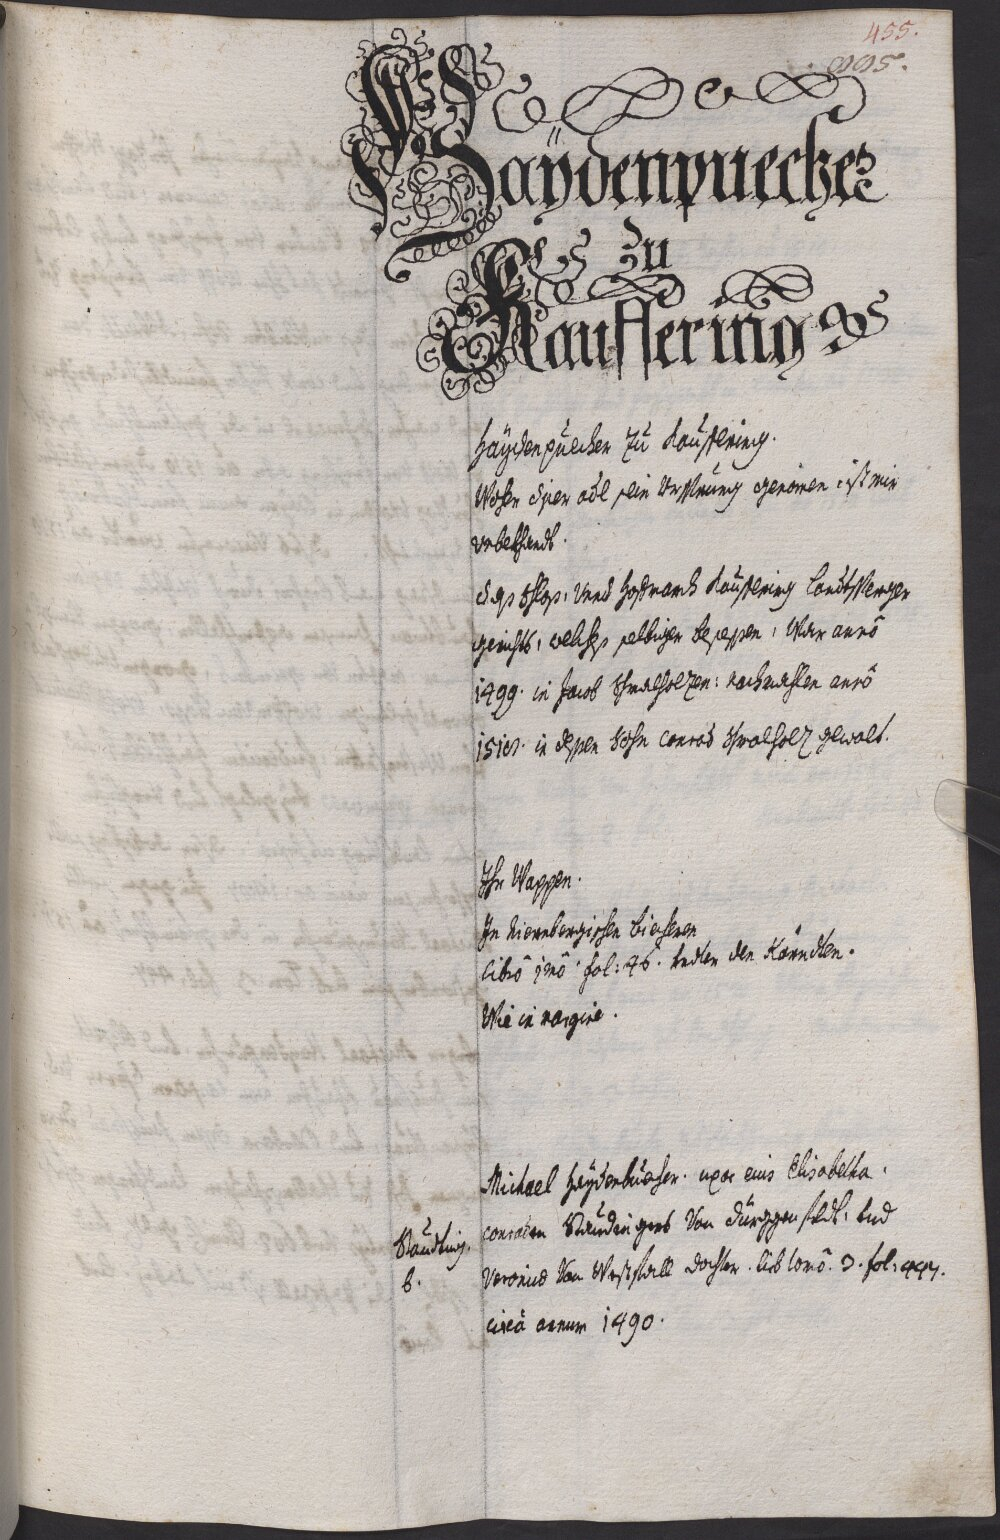 455.
Haÿdenpuecher
Zu
Kauffering
Haÿdenpuecher Zu Kauffering.
Woher diser adl sein Vrsprung genomen ist mir
vnbekhandt.
das schloss, Vnnd Hofmarch Kauffering Landtsperger
gerichts, welches selbiger besessen, War anno
1499. in Jacob Schmalholzen: nachmahlen anno
in dessen Sohn Conrad Schmalholz gewalt.
Ihr Wappen.
In Niernbergischen biechern
libro fol: 96. under den Kärndten.
Wie in margine.
Michael Haÿdenbuecher. uxor eius Elisabetha.
Conraden Von vnd
Stäudting. Veronica Von Weststall dochter. lib tomo. 3. fol: 447.
b.
circa annum 1490.